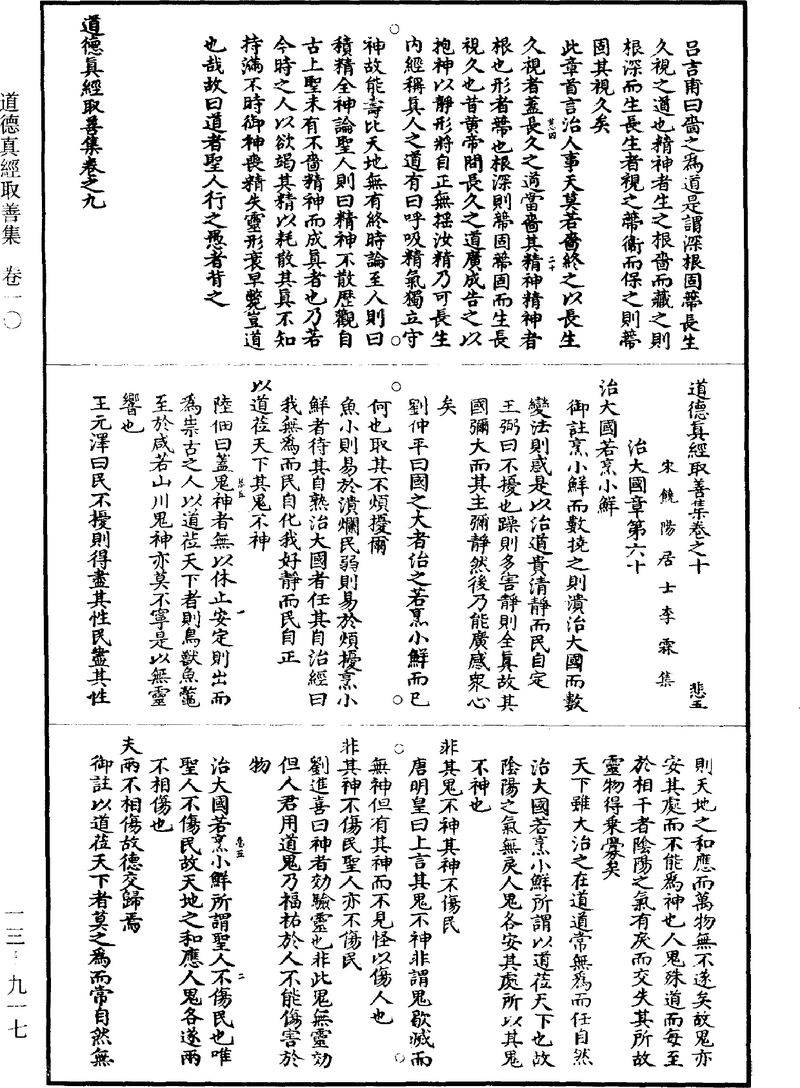 呂吉甫曰嗇之為道是謂深根固蔕長生
久視之道也精神者生之根嗇而藏之則
根深而生長生者視之蔕衞而保之則蔕
固其視久矣
此章首言治人事天莫若嗇終之以長生
久視者蓋長久之道當嗇其精神精神者
根也形者蔕也根深則蔕固蔕固而生長
視久也昔黃帝問長久之道廣成告之以
抱神以靜形將自正無搖汝精乃可長生
內經稱真人之道有曰呼吸精氣獨立守
神故能壽比天地無有終時論至人則曰
積精全神論聖人則曰精神不散歷觀自
古上聖未有不嗇精神而成真者也乃若
今時之人以欲竭其精以耗散其真不知
持滿不時御神喪精失靈形衰早斃豈道
也哉故曰道者聖人行之愚者背之
道德真經取善集卷之九
道德真經取善集卷之十
悲五
宋饒陽居士李霖集
治大國章第六十
治大國若烹小鮮
御註烹小鮮而數撓之則潰治大國而數
變法則惑是以治道貴清靜而民自定
王弼曰不擾也躁則多害靜則全真故其
國彌大而其主彌靜然後乃能廣感衆心
矣
劉仲平曰國之大者治之若烹小鮮而已
何也取其不煩擾爾
魚小則易於潰爛民弱則易於煩擾烹小
鮮者待其自熟治大國者任其自治經曰
我無為而民自化我好靜而民自正
以道莅天下其鬼不神
陸佃曰蓋鬼神者無以休止安定則出而
為祟古之人以道莅天下者則鳥獸魚鼈
至於咸若山川鬼神亦莫不寧是以無靈
響也
王元澤曰民不擾則得盡其性民盡其性
則天地之和應而萬物無不遂矣故鬼亦
安其處而不能為神也人鬼殊道而每至
於相干者陰陽之氣有戾而交失其所故
靈物得乘釁矣
天下雖大治之在道道常無為而任自然
治大國若烹小鮮所謂以道莅天下也故
陰陽之氣無戾人鬼各安其處所以其鬼
不神也
非其鬼不神其神不傷民
唐明皇曰上言其鬼不神非謂鬼歇滅而
無神但有其神而不見怪以傷人也
非其神不傷民聖人亦不傷民
劉進喜曰神者効驗靈也非此鬼無靈効
但人君用道鬼乃福祐於人不能傷害於
物
治大國若烹小鮮所謂聖人不傷民也唯
聖人不傷民故天地之和應人鬼各遂兩
不相傷也
夫兩不相傷故德交歸焉
御註以道莅天下者莫之為而常自然無
道德真經取善集 卷一〇
一三·九一七